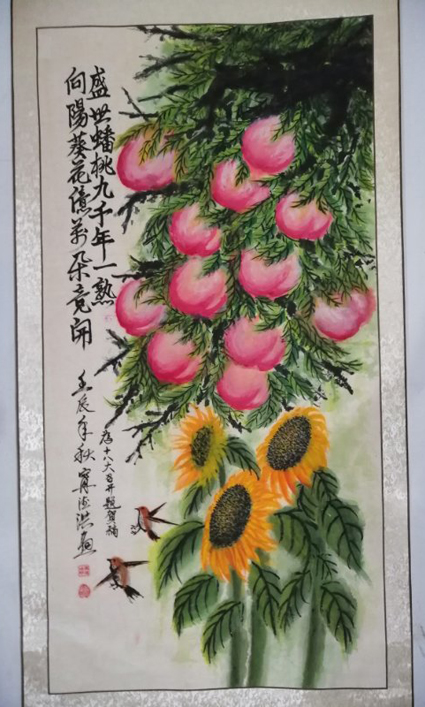 盛世蟠桃九千年一熟
向陽葵花億萬朵竟開
為十八大召开题贺稿
壬辰年秋寗德洪畫